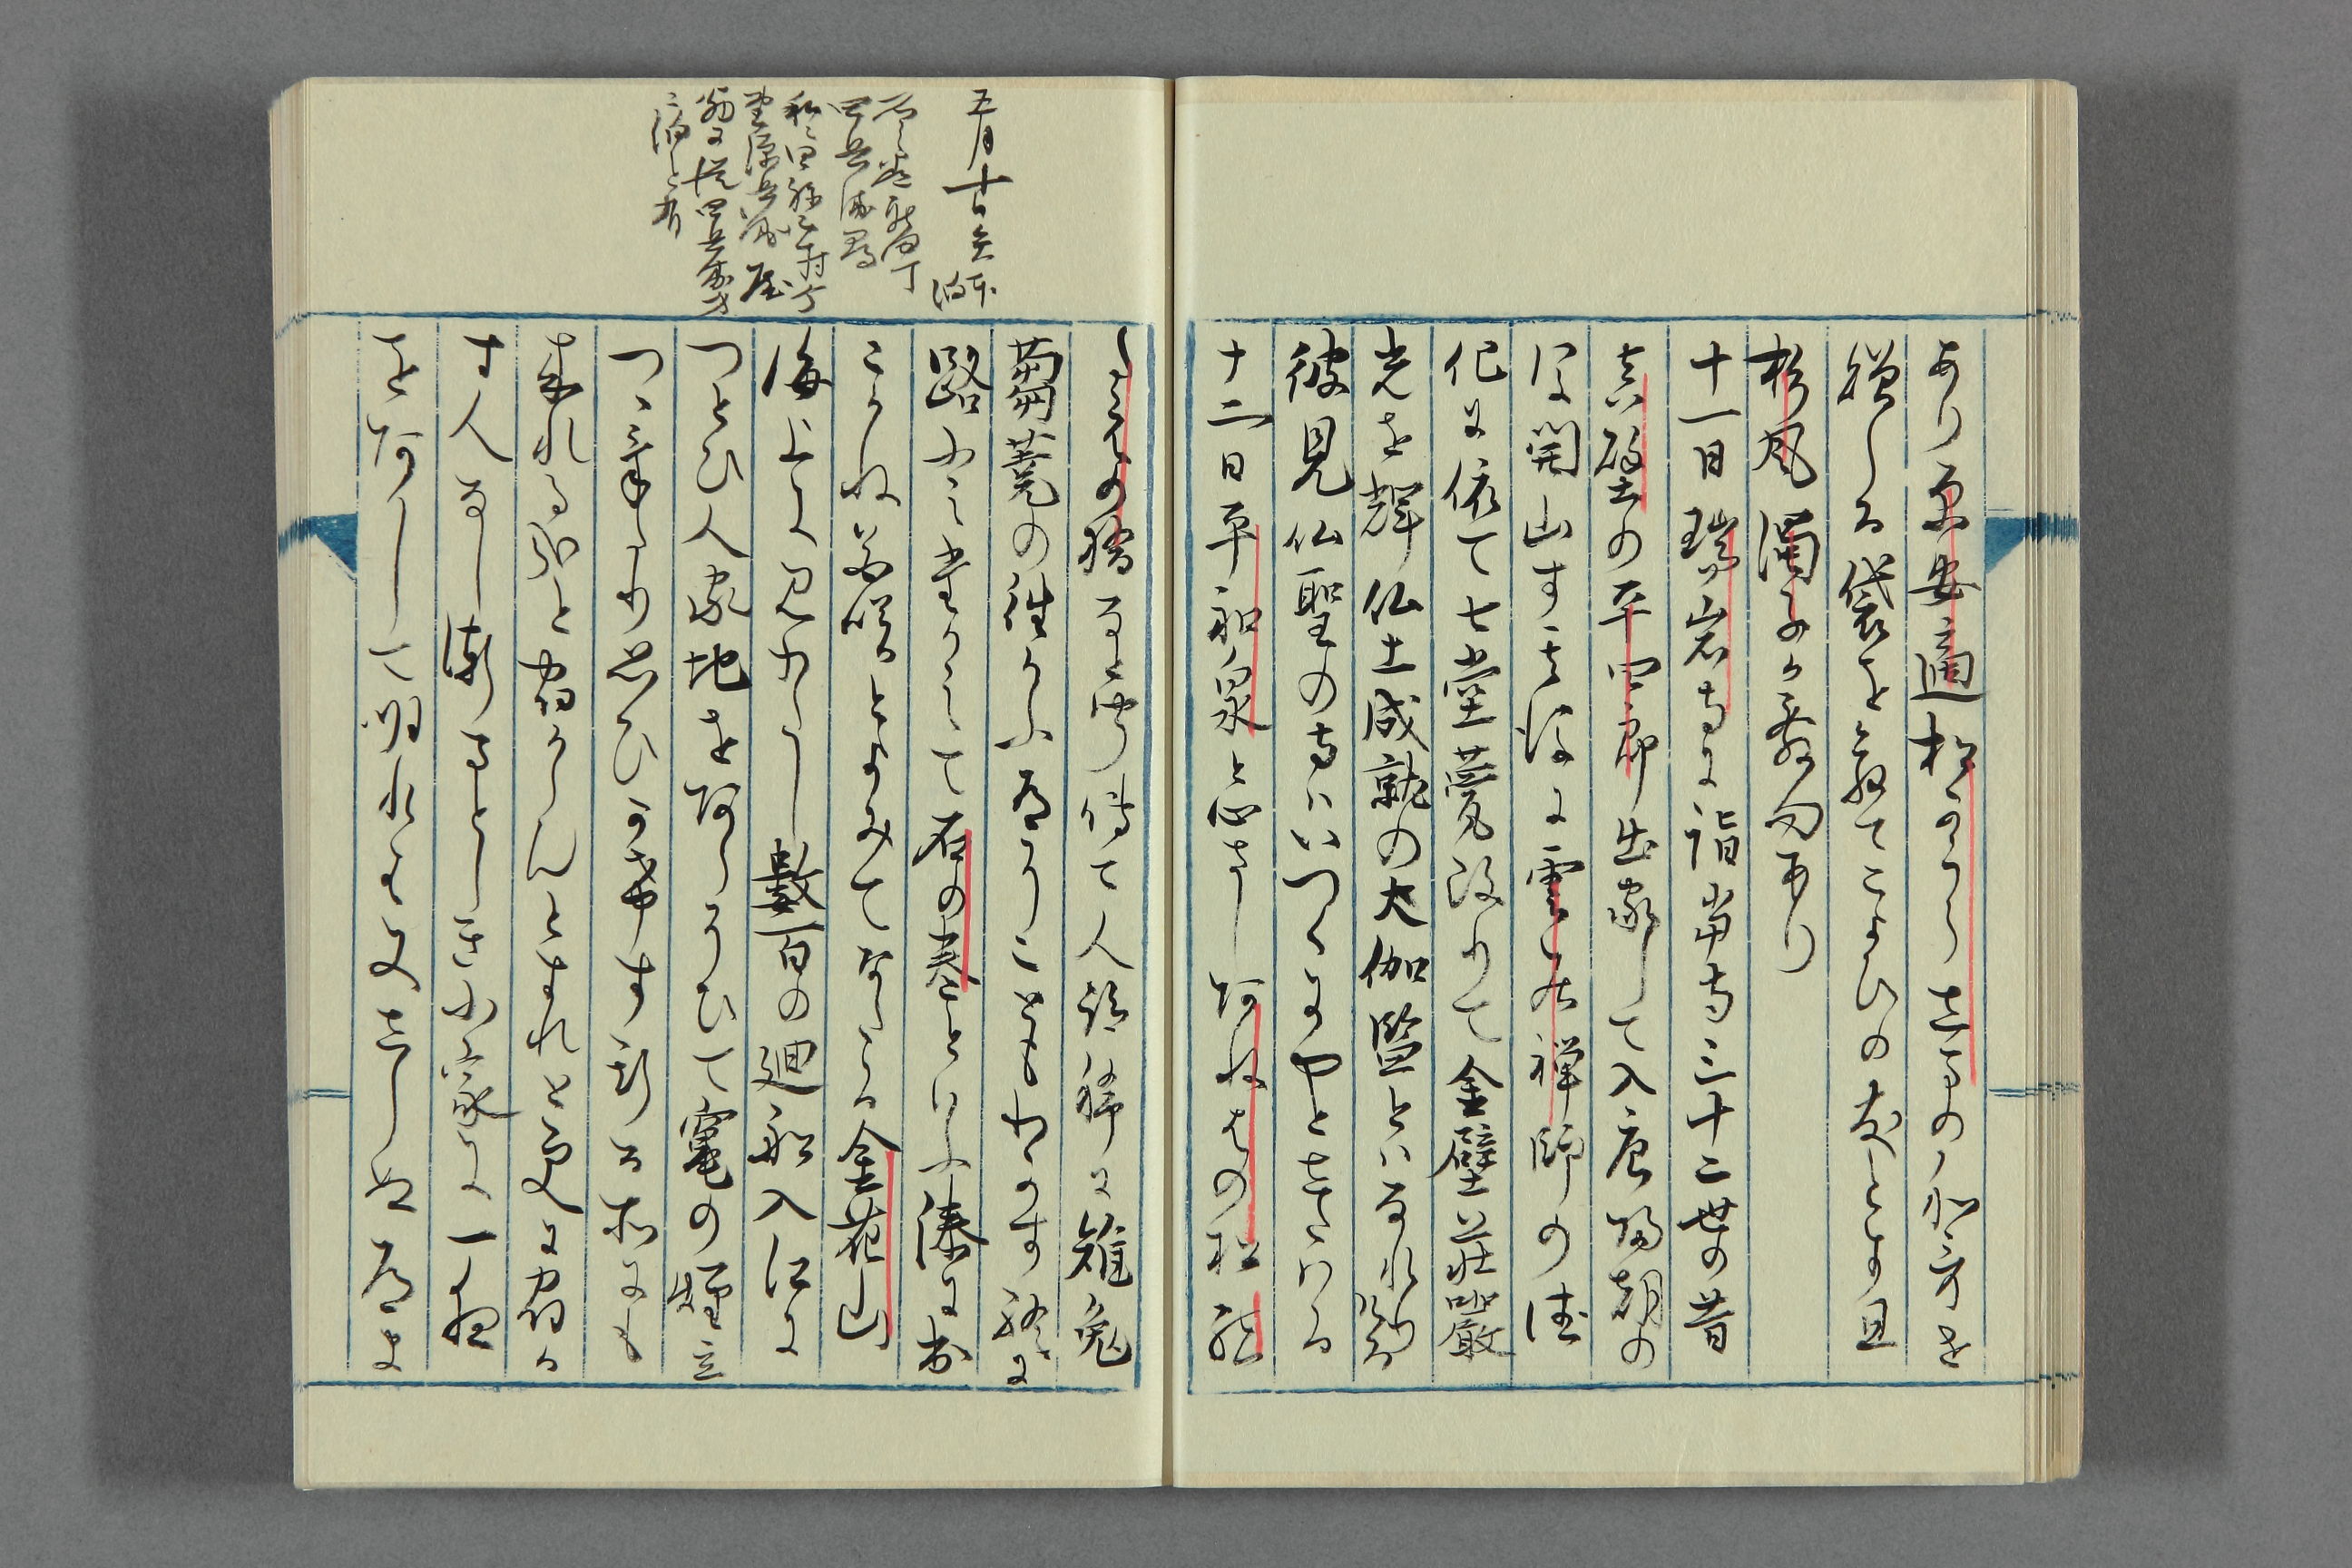 あり原安適松かうら嶋の和哥を
贈らる袋を解てこよひの友とす且
杉風濁子か發句あり
十一日瑞岩寺に詣當寺三十二世の昔
真壁の平四郎出家して入唐帰朝の
後開山す其後に雲居禅師の徳
化に依て七堂甍改りて金壁荘嚴
光を輝仏土成就の大伽藍とはなれりける
彼見仏聖の寺はいつくにやとしたはる
十二日平和泉と心さしあねはの松
橋なと聞傳て人跡稀に雉兎
蒭蕘の往かふ道そこともわかす終に
路ふみたかへて石の巻といふ湊に出
こかね花咲とよみてたる金花山
海上に見わたし數百の廻船入江に
つとひ人家地をあらそひて竈の煙立
つゝけたり思ひかけす斯る所にも
来れる哉と宿からんとすれと更に宿か
す人なし漸まとしき小家に一夜
をあかして明れは又しらぬ道ま
五月十日
石ノ巻
四兵衛